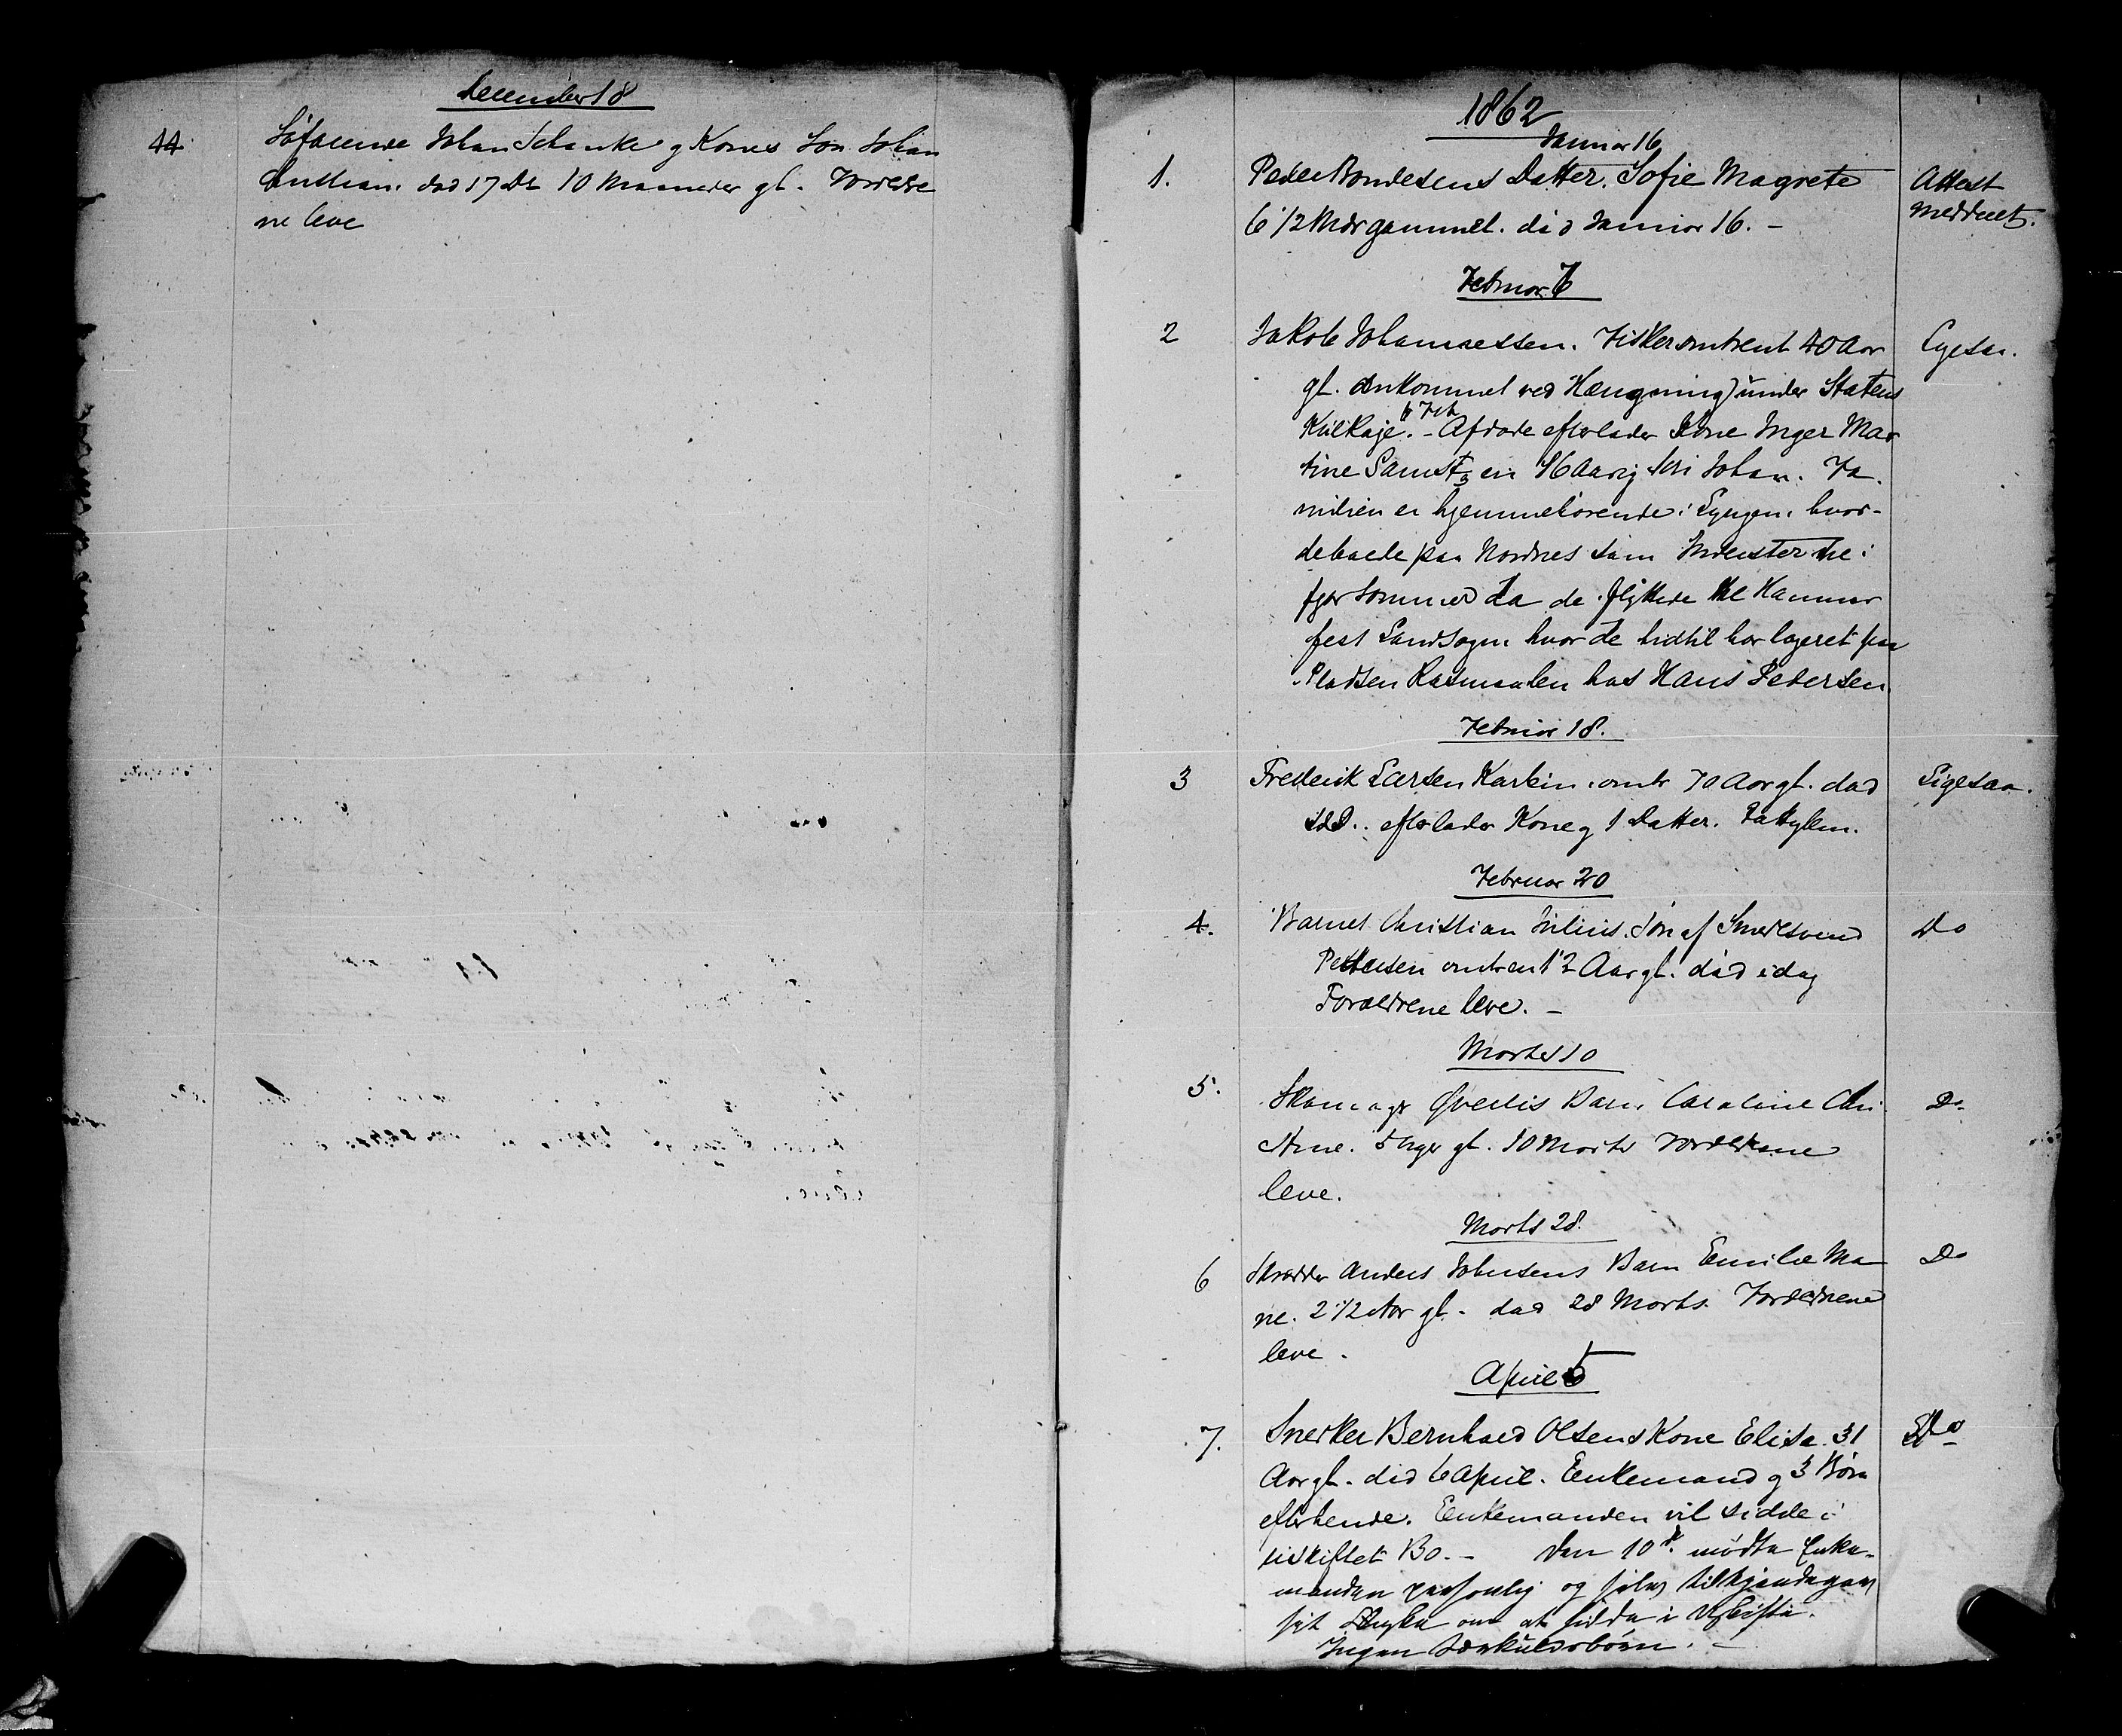 December 18
44 Søfarende Johan Schanke og Kones Søn Johan
Christian. død 17 Ds 10 Maaneder gl. Forældre
ne leve
1862
Januar 16
1. Peder Bondesens Datter. Sofie Magrete Attest
6 1/2 Mdr gammel. død Januar 16. – meddelt.
Februar 6
2 Jakob Johannessen. Fisker omtrent 40 Aar Ligesaa.
gl. omkommet ved Hængning under Statens
Kulkaje. 4 Feb – Afdøde efterlader Kone Inger Mar
tine samt en 16 Aarig Søn Johan. Fa.
milien er hjemmehørende i Lyngen. hvor-
de boede paa Nordnes som Inderster til i
fjor Sommer da de flyttede til Hammer
fest Landsogn hvor de hidtil har logeret paa
Pladsen hos Hans Pedersen.
Februar 18.
3 Frederik Larsen omtr 70 Aar gl. død Ligesaa.
efterlader Kone og 1 Datter. Fattiglem.
Februar 20
4. Barnet Christian Julius. Søn af Smed Svend Do
Pettersen omtrent 2 Aar gl. død idag
Forældrene leve. –
Marts 10
5. Skomager Barn Caroline Chri Do
stine. 5 Uger gl. 10 Marts Forældrene
leve.
Marts 28.
6 Skrædder Anders Johnsens Barn Emilie Ma Do
rie. 2 1/2 Aar gl. død 28 Marts. Forældrene
leve.
April 5
7. Snedker Bernhard Olsens Kone Elisa. 31 Do
Aar gl. død 6 April. Enkemand og 3 Børn
efter hende. Enkemanden vil sidde i
uskiftet Bo. – Den 10de mødte Enke-
manden personlig og selv tilkjendegav
sit Ønske om at sidde i Uskifte.
Ingen Særkulsbørn. –